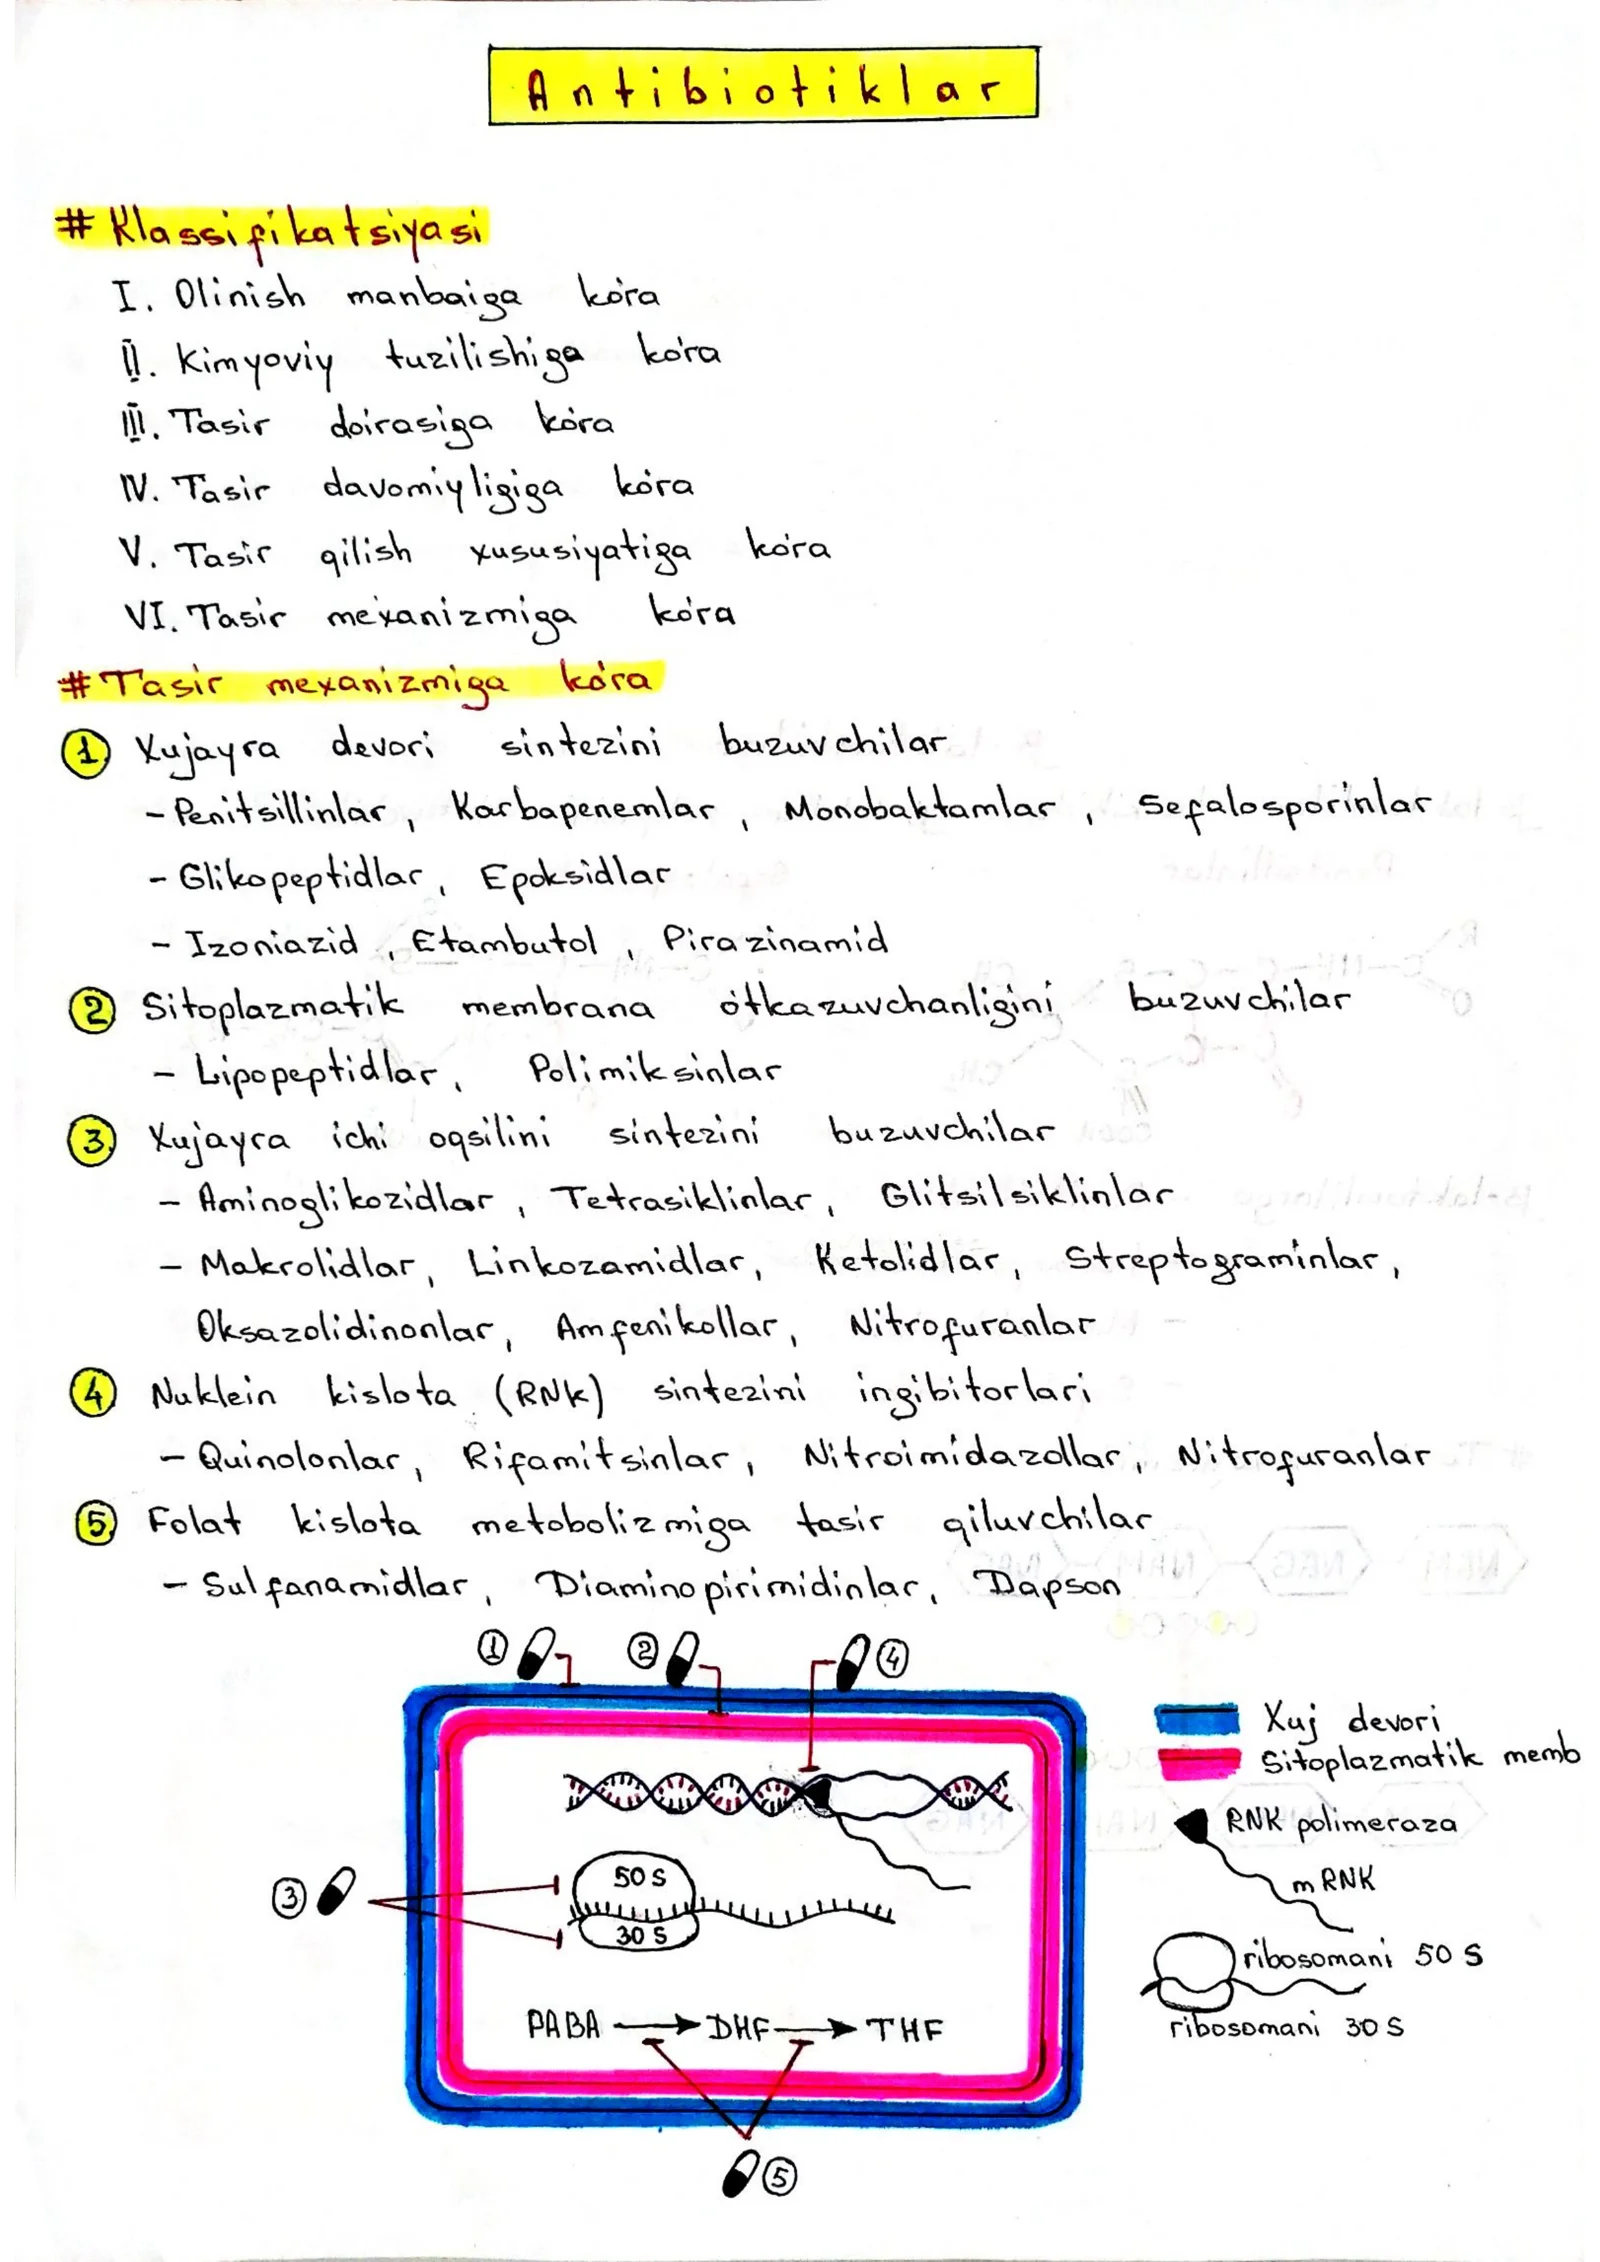 Antibiotiklar
# Klassifikatsiyasi
I. Olinish manbaiga ko'ra
II. Kimyoviy tuzilishiga ko'ra
III. Tasir doirasiga ko'ra
IV. Tasir davomiyligiga ko'ra
V. Tasir qilish xususiyatiga ko'ra
VI. Tasir mexanizmiga ko'ra
# Tasir mexanizmiga ko'ra
1 Xujayra devori sintezini buzuvchilar
- Penitsillinlar, Karbapenemlar, Monobaktamlar, Sefalosporinlar
- Glikopeptidlar, Epoksidlar
- Izoniazid, Etambutol, Pirazinamid
2 Sitoplazmatik membrana o'tkazuvchanligini buzuvchilar
- Lipopeptidlar, Polimiksinlar
3 Xujayra ichi oqsilini sintezini buzuvchilar
- Aminoglikozidlar, Tetrasiklinlar, Glitsilsiklinlar
- Makrolidlar, Linkozamidlar, Ketolidlar, Streptograminlar,
Oksazolidinonlar, Amfenikollar, Nitrofuranlar
4 Nuklein kislota (RNK) sintezini ingibitorlari
- Quinolonlar, Rifamitsinlar, Nitroimidazollar, Nitrofuranlar
5 Folat kislota metobolizmiga tasir qiluvchilar
- Sulfanamidlar, Diaminopirimidinlar, Dapson
1 2 4
Xuj devori
Sitoplazmatik memb
RNK polimeraza
mRNK
3
50 S
30 S
ribosomani 50 S
ribosomani 30 S
PABA → DHF → THF
5